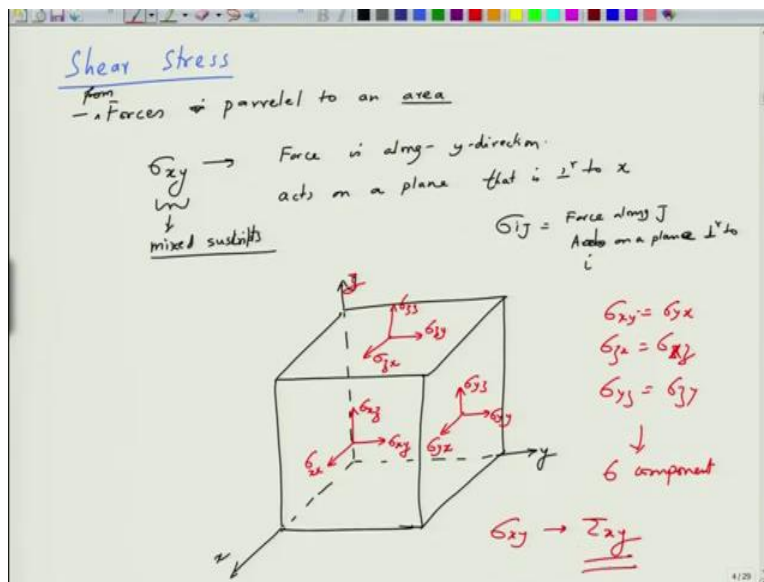 Shear Stress
from
- ^ Forces parrelel to an area
σxy → Force is along - y-direction.
acts on a plane that is ⊥r to x
↓
mixed suskripts
σij = Force along J
Acts on a plane ⊥r to
i
z
σzz
σzy
σzx
σxz
σxy
σxx
σyz
σyy
σyx
y
x
σxy = σyx
σzx = σxz
σyz = σzy
↓
6 component
σxy → τxy
4/29